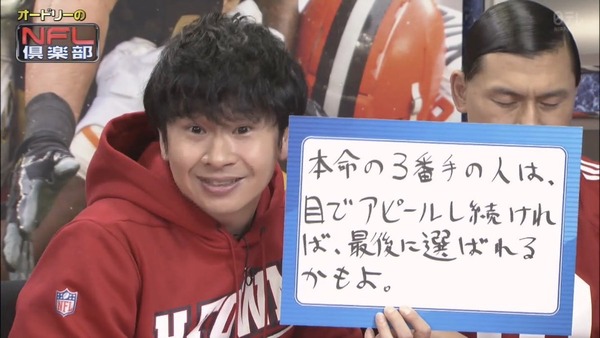 オードリーの
NFL
倶楽部
本命の3番手の人は、
目でアピールし続けれ
ば、最後に選ばれる
かもよ。
NFL